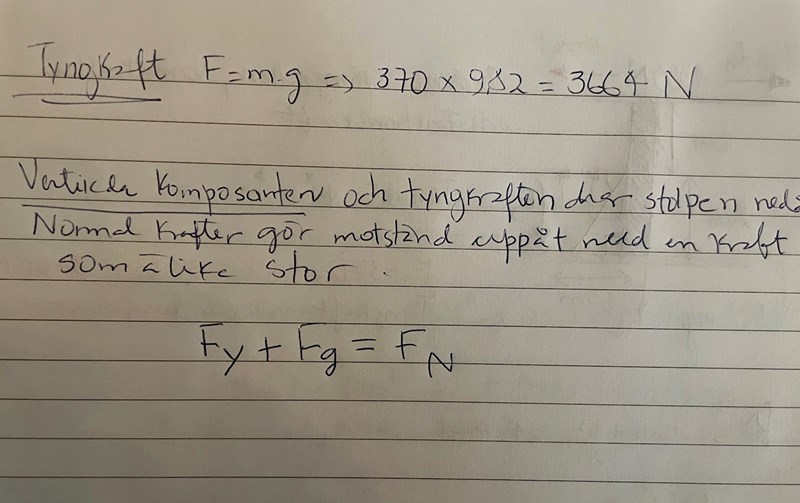 Tyngkraft F = m·g => 370 x 9,82 = 3664 N
Vertikala Komposanten och tyngkraften drar stolpen ned
Normal Krafter gör motstånd uppåt med en kraft
som ä lika stor.
Fy + Fg = FN